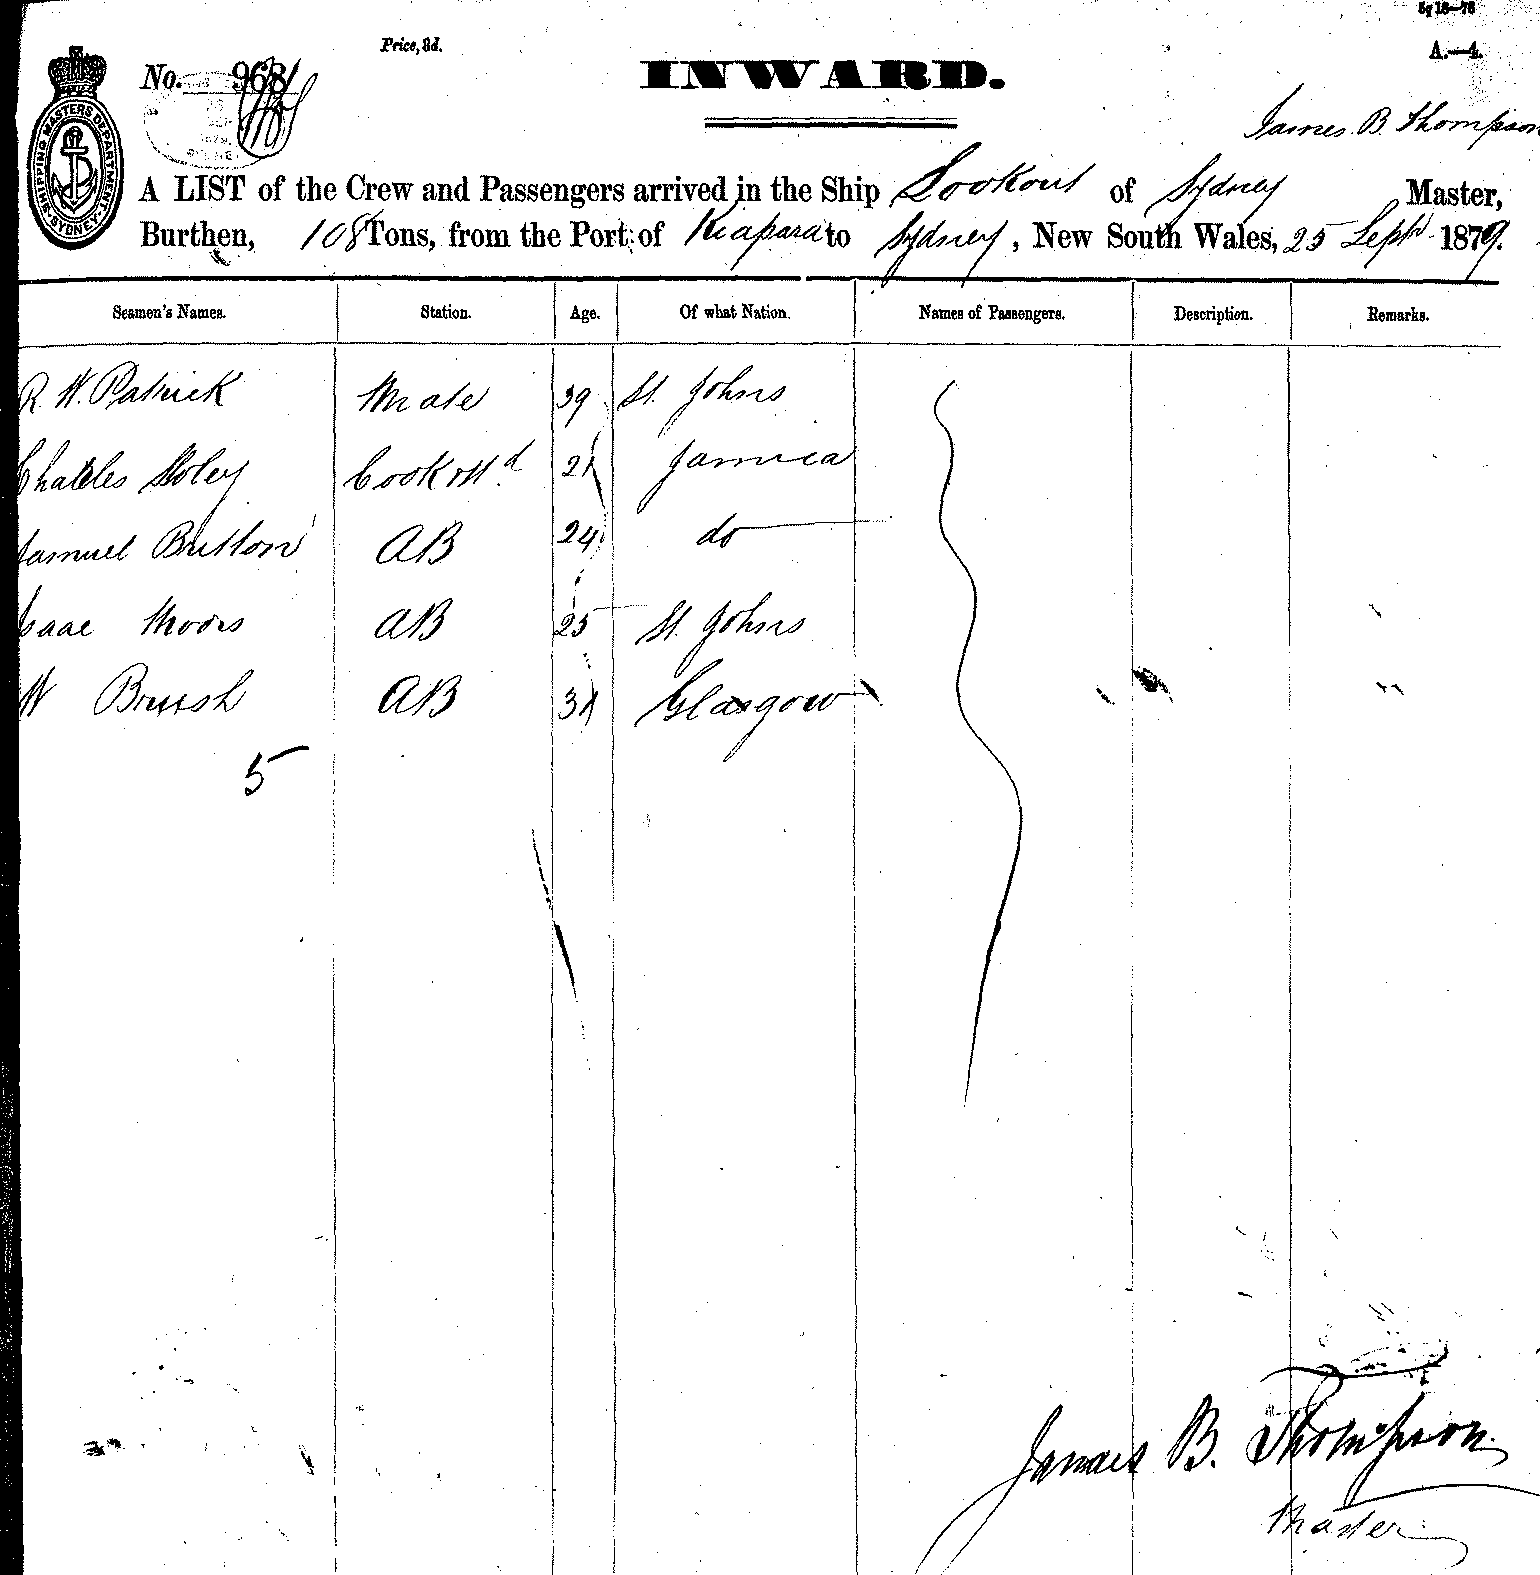 Sy 18—78
Price, 3d.
A.—4.
No. 968
INWARD.
SHIPPING MASTERS DEPARTMENT SYDNEY
James B Thompson
A LIST of the Crew and Passengers arrived in the Ship Lookout of Sydney Master,
Burthen, 108 Tons, from the Port of Kiapara to Sydney, New South Wales, 25 Septr 1879.
Seamen's Names. Station. Age. Of what Nation. Names of Passengers. Description. Remarks.
R. W. Patrick Mate 39 St. Johns
Charles Cook & Std 21 Jamica
Samuel Button AB 24 do
Isaac Moors AB 25 St. Johns
W Brush AB 31 Glasgow
5
James B. Thompson
Master